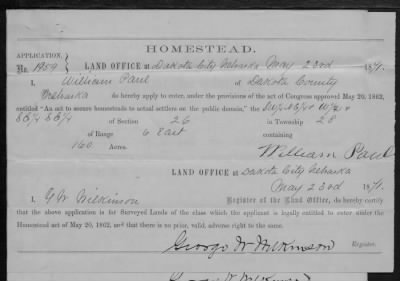 HOMESTEAD.
APPLICATION. LAND OFFICE at Dakota City Nebraska May 23rd 1871.
No. 1959
I, William Paul of Dakota County
Nebraska do hereby apply to enter, under the provisions of the act of Congress approved May 20, 1862,
entitled "An act to secure homesteads to actual settlers on the public domain," the
SE¼ SE¼ of Section 26 in Township 28
of Range 6 East containing
160 Acres.
William Paul
LAND OFFICE at Dakota City Nebraska
May 23rd 1871.
I, G W Wilkinson Register of the Land Office, do hereby certify
that the above application is for Surveyed Lands of the class which the applicant is legally entitled to enter under the
Homestead act of May 20, 1862, and that there is no prior, valid, adverse right to the same.
George W Wilkinson
Register.